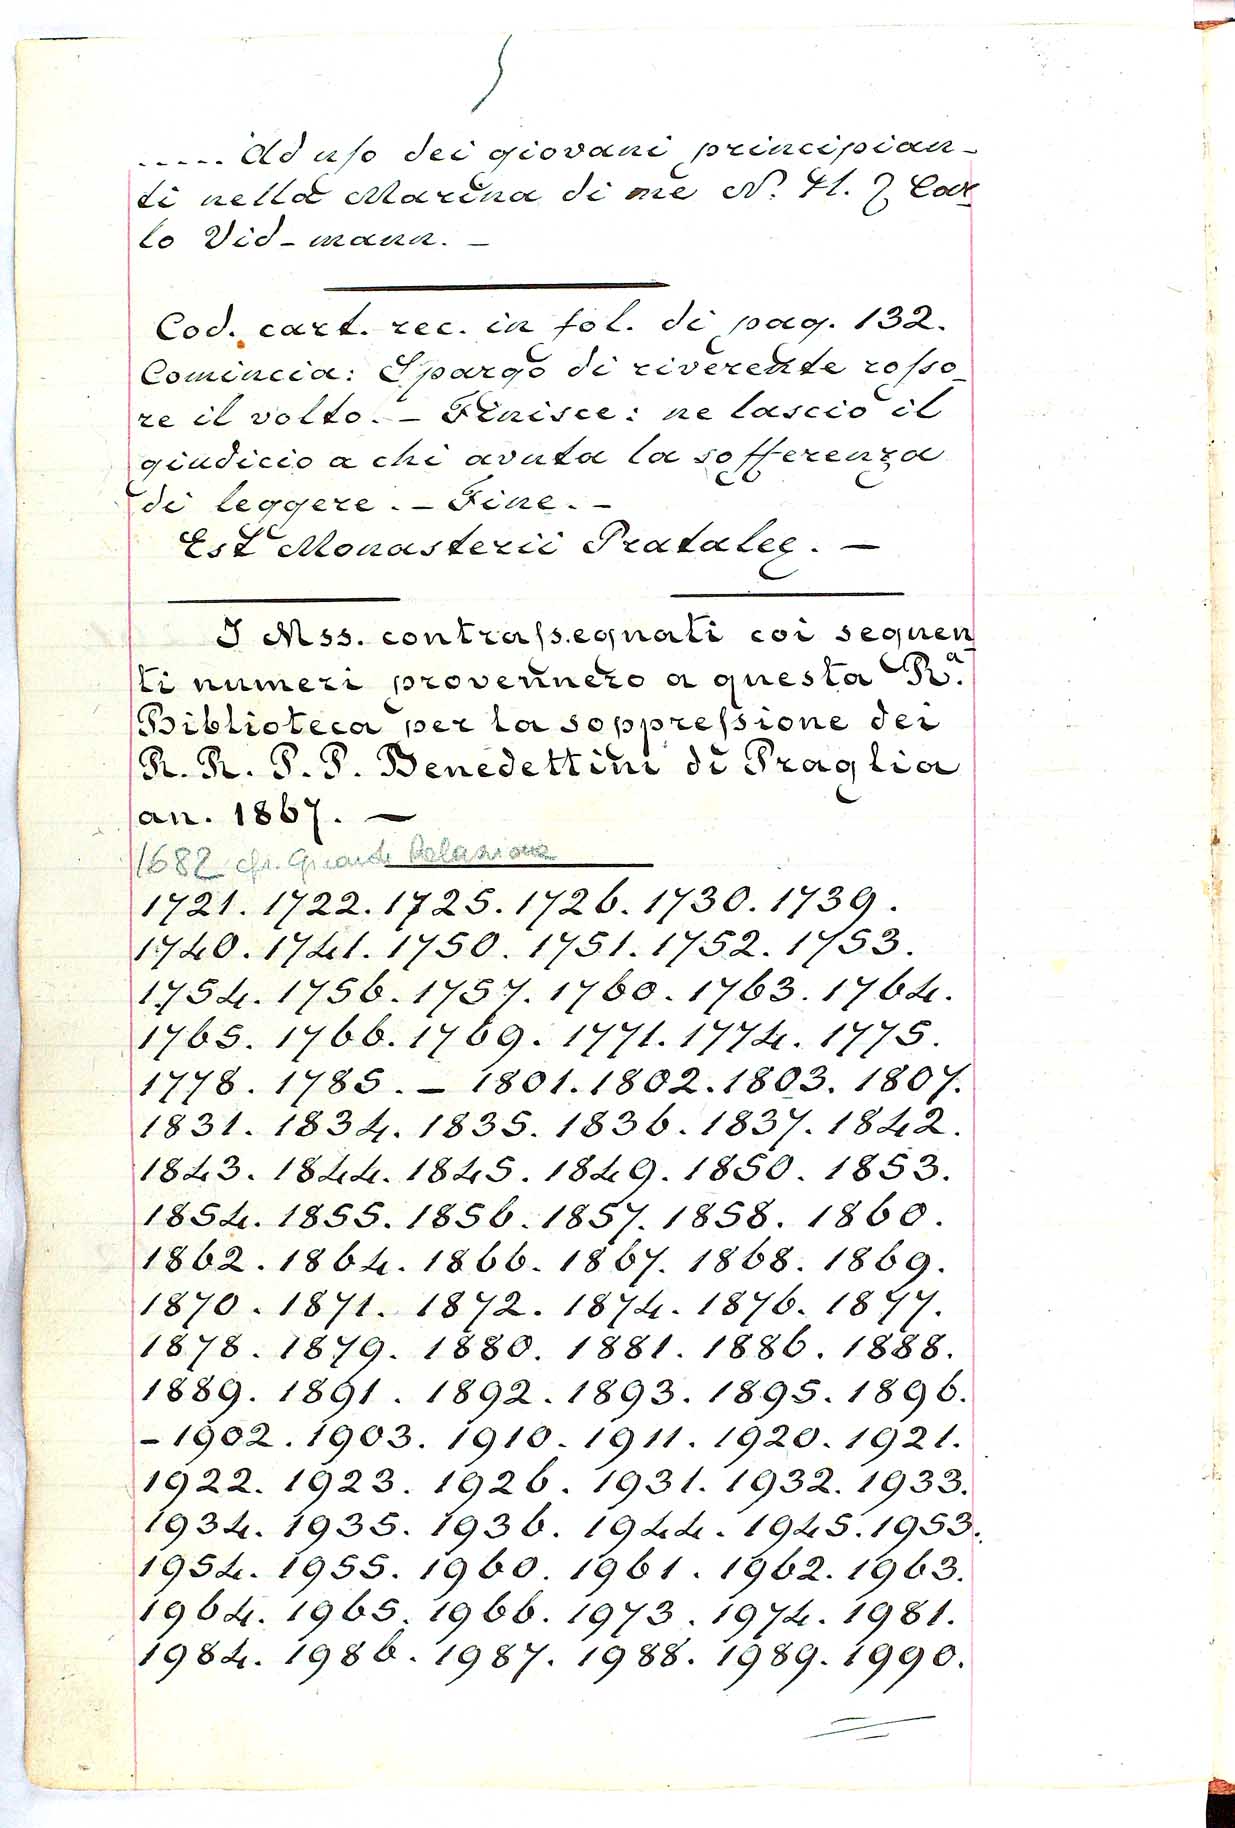 ..... Ad uſo dei giovani principian-
ti nella Marina di me N. H. Z Car-
lo Vid-mann. -
Cod. cart. rec. in fol. di pag. 132.
Comincia: Spargo di riverente roſso-
re il volto. - Finisce: ne lascio il
giudicio a chi avuta la sofferenza
di leggere. - Fine. -
Est Monasterii Pratalee. -
I Mss. contraſsegnati coi seguen-
ti numeri provennero a questa R.ª
Biblioteca per la soppreſsione dei
R. R. P. P. Benedettini di Praglia
an. 1867. -
1682 cfr. Guardi Relazione
1721. 1722. 1725. 1726. 1730. 1739.
1740. 1741. 1750. 1751. 1752. 1753.
1754. 1756. 1757. 1760. 1763. 1764.
1765. 1766. 1769. 1771. 1774. 1775.
1778. 1785. - 1801. 1802. 1803. 1807.
1831. 1834. 1835. 1836. 1837. 1842.
1843. 1844. 1845. 1849. 1850. 1853.
1854. 1855. 1856. 1857. 1858. 1860.
1862. 1864. 1866. 1867. 1868. 1869.
1870. 1871. 1872. 1874. 1876. 1877.
1878. 1879. 1880. 1881. 1886. 1888.
1889. 1891. 1892. 1893. 1895. 1896.
- 1902. 1903. 1910. 1911. 1920. 1921.
1922. 1923. 1926. 1931. 1932. 1933.
1934. 1935. 1936. 1944. 1945. 1953.
1954. 1955. 1960. 1961. 1962. 1963.
1964. 1965. 1966. 1973. 1974. 1981.
1984. 1986. 1987. 1988. 1989. 1990.